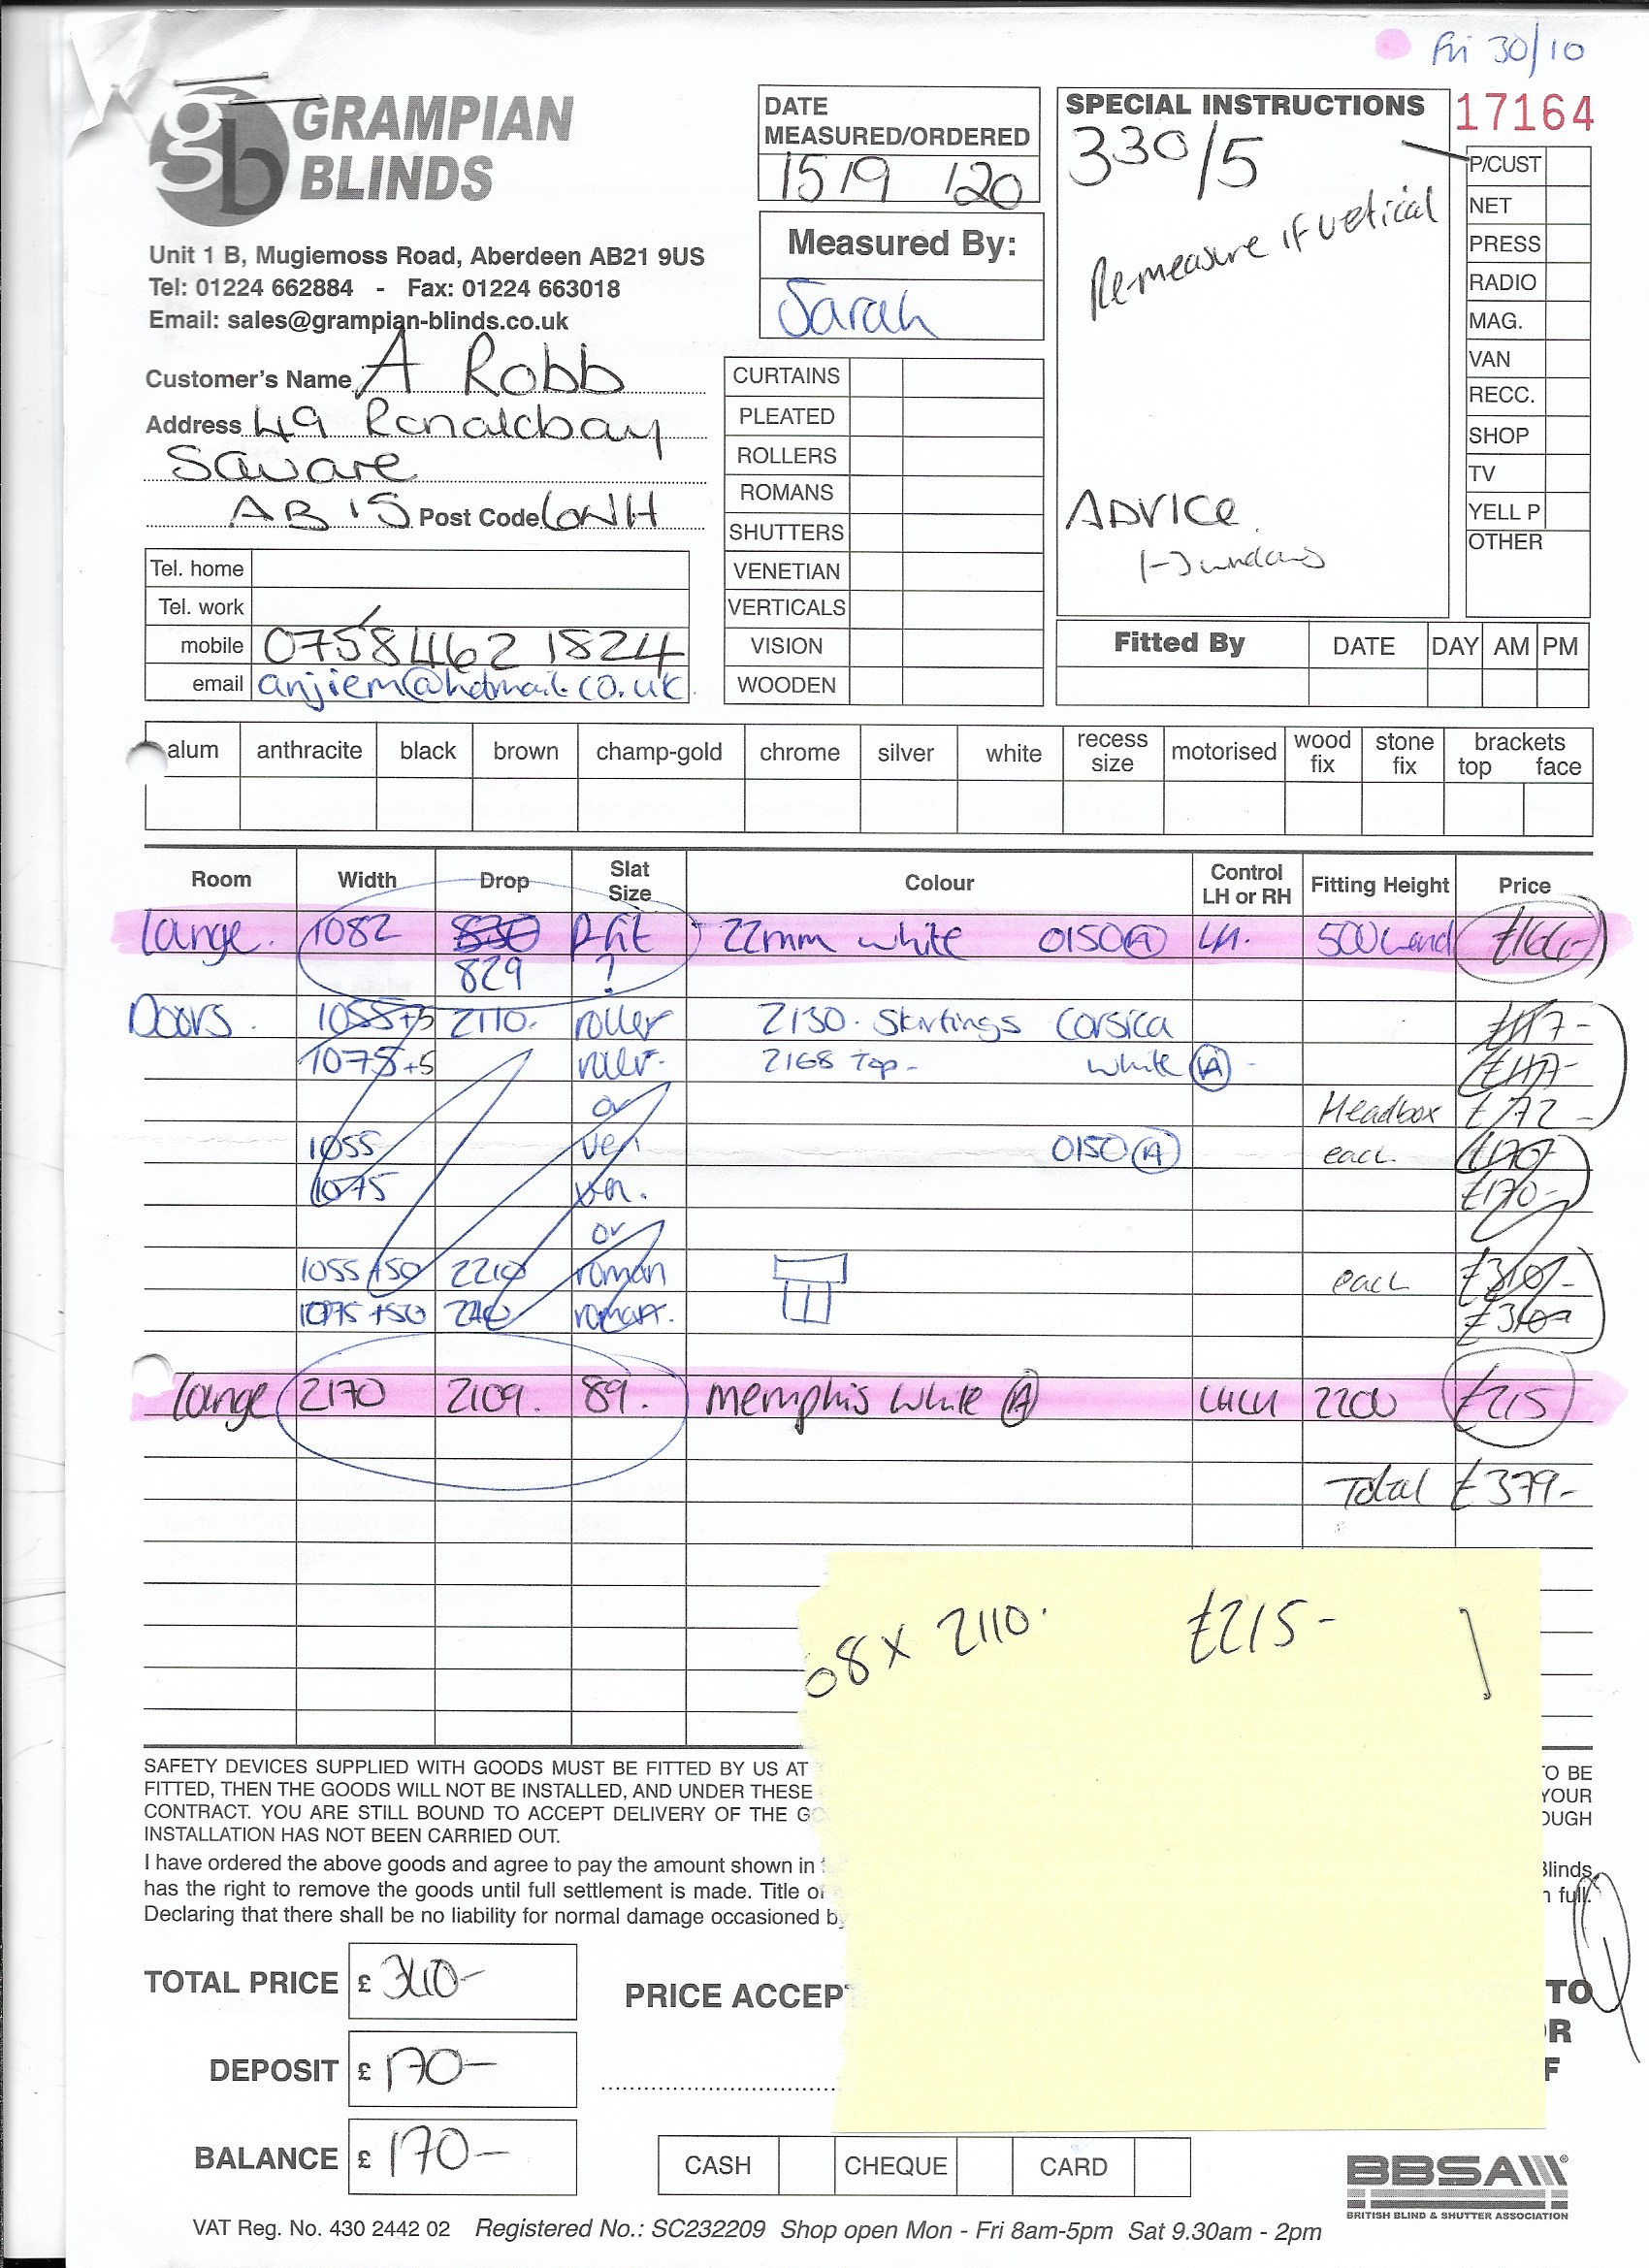 Fri 30/10
GRAMPIAN
BLINDS
gb
Unit 1 B, Mugiemoss Road, Aberdeen AB21 9US
Tel: 01224 662884 - Fax: 01224 663018
Email: sales@grampian-blinds.co.uk
DATE
MEASURED/ORDERED
15/9/20
Measured By:
Sarah
SPECIAL INSTRUCTIONS
330/5
Re-measure if vetical
ADVICE
17164
P/CUST
NET
PRESS
RADIO
MAG.
VAN
RECC.
SHOP
TV
YELL P
OTHER
Customer's Name A Robb
Address 49 Ronaldsay
Square
AB15 Post Code 6WH
Tel. home
Tel. work
mobile 07584621824
email anjiem@hotmail.co.uk
CURTAINS
PLEATED
ROLLERS
ROMANS
SHUTTERS
VENETIAN
VERTICALS
VISION
WOODEN
Fitted By DATE DAY AM PM
alum anthracite black brown champ-gold chrome silver white recess size motorised wood fix stone fix brackets top face
Room Width Drop Slat Size Colour Control LH or RH Fitting Height Price
Lounge. 1082 830 P.fit 22mm white 0150 A LH. 500
829 ?
Doors. 1055+5 2110. roller 2130. Skirtings Corsica
1075+5 2168 Top - white A -
or Headbox £172-
1055 ven 0150 A each £170
1075 ven. £170-
or
1055+50 2210 roman each £310-
1075+50 2210 roman. £310-
Lounge 2170 2109. 89. Memphis White A 2200 £215
Total £379-
08 x 2110. £215-
SAFETY DEVICES SUPPLIED WITH GOODS MUST BE FITTED BY US AT O BE
FITTED, THEN THE GOODS WILL NOT BE INSTALLED, AND UNDER THESE YOUR
CONTRACT. YOU ARE STILL BOUND TO ACCEPT DELIVERY OF THE GO OUGH
INSTALLATION HAS NOT BEEN CARRIED OUT.
I have ordered the above goods and agree to pay the amount shown in Blinds,
has the right to remove the goods until full settlement is made. Title of n full.
Declaring that there shall be no liability for normal damage occasioned by
TOTAL PRICE £ 340-
PRICE ACCEPT TO
OR
F
DEPOSIT £ 170-
BALANCE £ 170-
CASH CHEQUE CARD
BBSA
BRITISH BLIND & SHUTTER ASSOCIATION
VAT Reg. No. 430 2442 02 Registered No.: SC232209 Shop open Mon - Fri 8am-5pm Sat 9.30am - 2pm